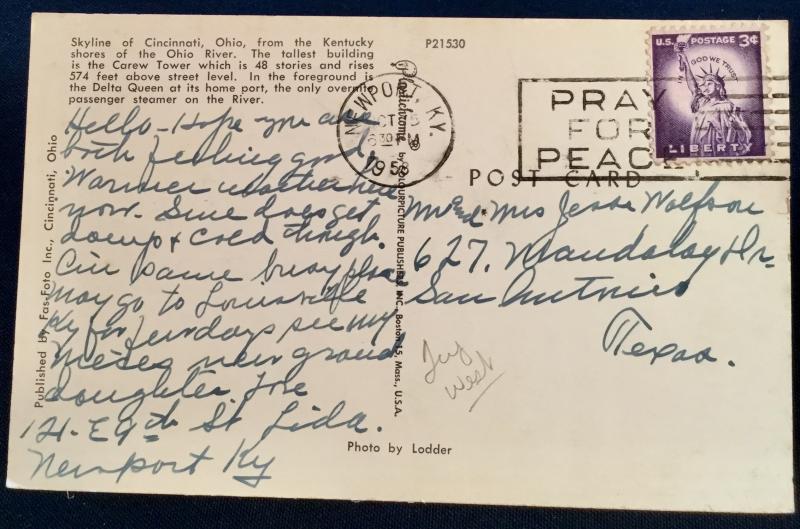 Skyline of Cincinnati, Ohio, from the Kentucky
shores of the Ohio River. The tallest building
is the Carew Tower which is 48 stories and rises
574 feet above street level. In the foreground is
the Delta Queen at its home port, the only overnite
passenger steamer on the River.
P21530
Hello - Hope you are
both feeling good,
Warmer weather here
now. Sure does get
damp & cold though.
Cin same busy place
may go to Louisville
Ky for few days see my
nieces new grand
daughter. Love
121-E 9th St Lida.
Newport Ky
Published by Fas-Foto Inc., Cincinnati, Ohio
Plastichrome ® by COLOURPICTURE PUBLISHERS, INC., Boston 15, Mass., U.S.A.
NEWPORT, KY.
OCT 5
630 PM
1958
PRAY
FOR
PEACE
U.S. POSTAGE 3¢
IN GOD WE TRUST
LIBERTY
POST CARD
Mr and Mrs Jesse Wolfson
627, Mandalay Dr-
San Antonio
Texas.
West
Photo by Lodder